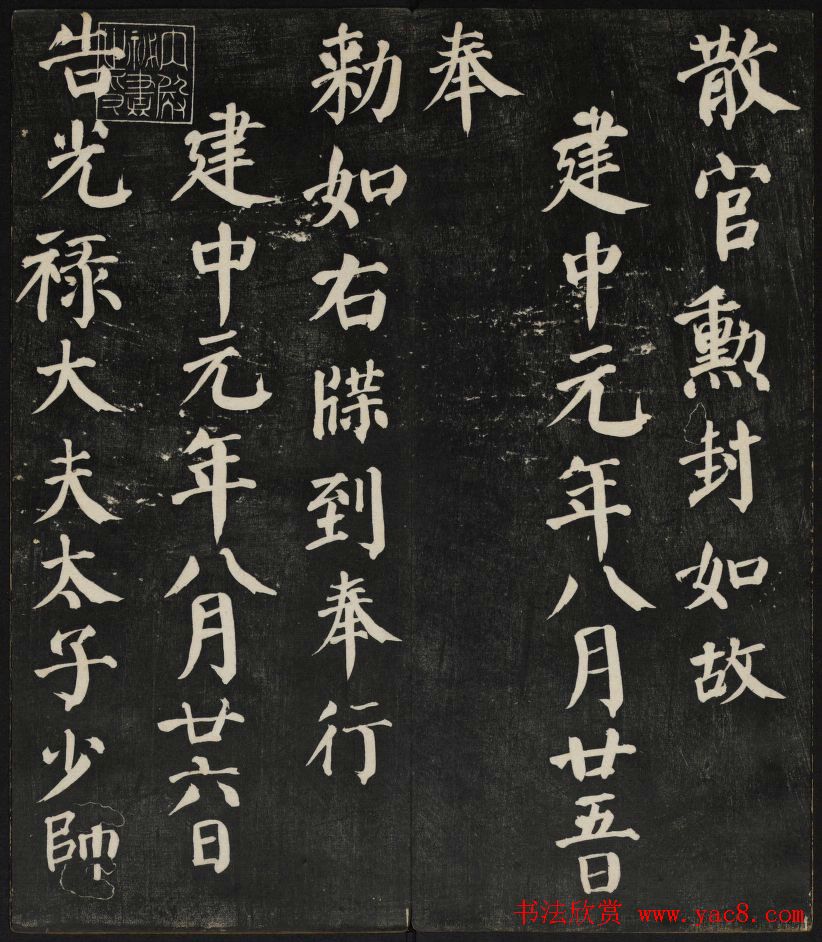 散官勳封如故
建中元年八月廿五日
奉
勑如右牒到奉行
建中元年八月廿六日
告光祿大夫太子少師
书法欣赏 www.yac8.com